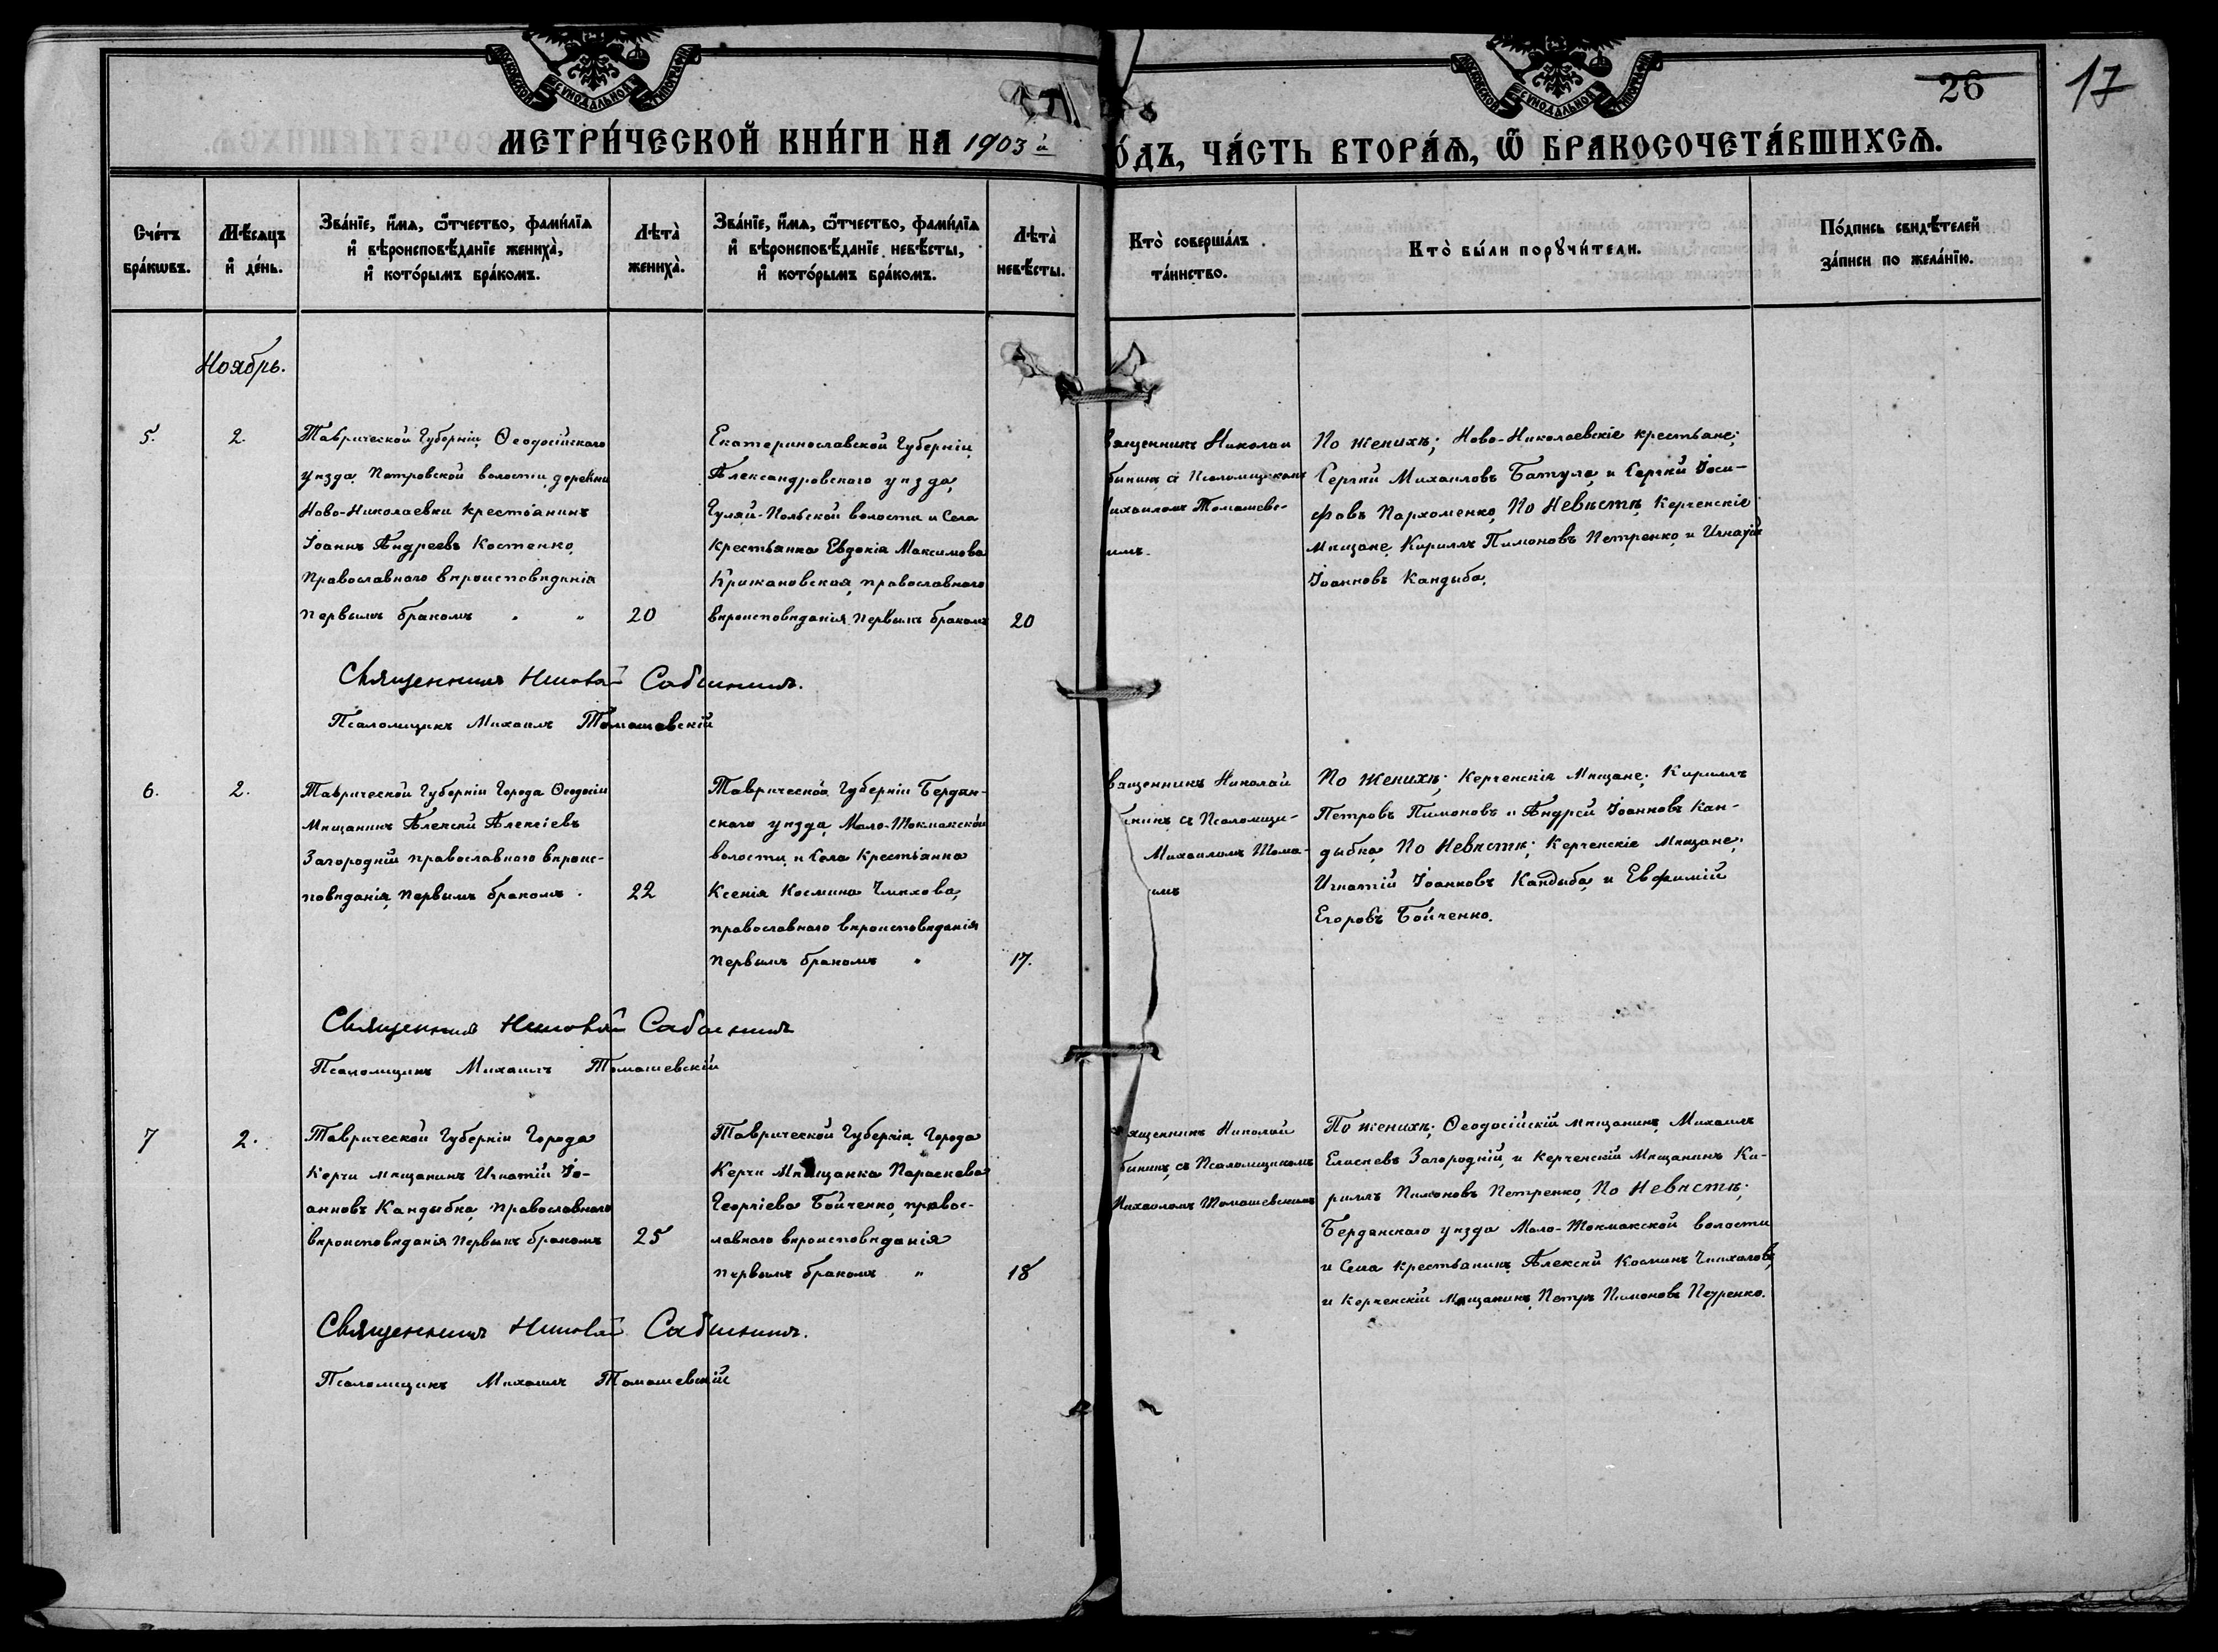 МОСКОВСКОЙ СѴНОДАЛЬНОЙ ТИПОГРАФІИ
МОСКОВСКОЙ СѴНОДАЛЬНОЙ ТИПОГРАФІИ
26
17
МЕТРИ́ЧЕСКОЙ КНИ́ГИ НА 1903й
О́ДЪ, ЧА́СТЬ ВТОРА́Ѧ, Ѽ БРАКОСОЧЕТА́ВШИХСѦ.
Сче́тъ бра́кѡвъ.
Мѣ́сѧцъ и҆ де́нь.
Зва́нїе, и҆́мѧ, ѻ҆́тчество, фами́лїѧ и҆ вѣроисповѣ́данїе жениха̀, и҆ кото́рымъ бра́комъ.
Лѣта̀ жениха̀.
Зва́нїе, и҆́мѧ, ѻ҆́тчество, фами́лїѧ и҆ вѣроисповѣ́данїе невѣ́сты, и҆ кото́рымъ бра́комъ.
Лѣта̀ невѣ́сты.
Кто̀ соверша́лъ та́инство.
Кто̀ бы́ли порꙋчи́тели.
По́дпись свидѣ́телей за́писи по жела́нїю.
Ноябрь.
5.
2.
Таврической Губерніи, Ѳеодосійскаго
уѣзда, Петровской волости, деревни
Ново-Николаевки крестьянинъ
Іоаннъ Андреевъ Костенко,
православнаго вѣроисповѣданія
первымъ бракомъ „ „
20
Екатеринославской Губерніи,
Александровскаго уѣзда,
Гуляй-Польской волости и Села
крестьянка Евдокія Максимова
Крижановская, православнаго
вѣроисповѣданія, первымъ бракомъ
20
вященникъ Николай
бининъ съ Псаломщикомъ
ихаиломъ Томашевс-
имъ.
По женихѣ; Ново-Николаевскіе крестьане;
Сергѣй Михаиловъ Батула, и Сергѣй Іоси-
фовъ Пархоменко, По Невѣстѣ, Керченскіе
Мѣщане, Кириллъ Пимоновъ Петренко, и Игнатій
Іоанновъ Кандыба.
Священникъ Николай Сабининъ.
Псаломщикъ Михаилъ Томашевскій
6.
2.
Таврической Губерніи Города Ѳеодосіи
Мѣщанинъ Алексѣй Алексіевъ
Загородній православнаго вѣроис-
повѣданія, первымъ бракомъ.
22
Таврической Губерніи Бердян-
скаго уѣзда, Мало-Токмакской
волости, и Села крестьянка
Ксенія Космина Чмихова,
православнаго вѣроисповѣданія
первымъ бракомъ „
17.
вященникъ Николай
бининъ съ Псаломщи-
Михаиломъ Тома-
имъ
По Женихѣ; Керченскія Мѣщане; Кириллъ
Петровъ Пимоновъ и Андрей Іоанновъ Кан-
дыбка, По Невѣстѣ; Керченскіе мѣщане;
Игнатій Іоанновъ Кандыба, и Евфимій
Егоровъ Бойченко.
Священникъ Николай Сабининъ
Псаломщикъ Михаилъ Томашевскій
7
2.
Таврической Губерніи Города
Керчи мѣщанинъ Игнатій Іо-
анновъ Кандыбка, православнаго
вѣроисповѣданія первымъ бракомъ
25
Таврической Губерніи, Города
Керчи Мѣщанка Параскева
Георгіева Бойченко, правос-
лавнаго вѣроисповѣданія
первымъ бракомъ „
18
ященникъ Николай
бининъ, съ Псаломщикомъ
Михаиломъ Томашевскимъ
По женихѣ; Ѳеодосійскій мѣщанинъ, Михаилъ
Елисеевъ Загородній, и Керченскій Мѣщанинъ Ки-
риллъ Пимоновъ Петренко, По Невѣстѣ;
Бердянскаго уѣзда Мало-Токмакской волости
и Села крестьанинъ, Алексѣй Косминъ
и Керченскій Мѣщанинъ, Петръ Пимоновъ Петренко.
Священникъ Николай Сабининъ.
Псаломщикъ Михаилъ Томашевскій